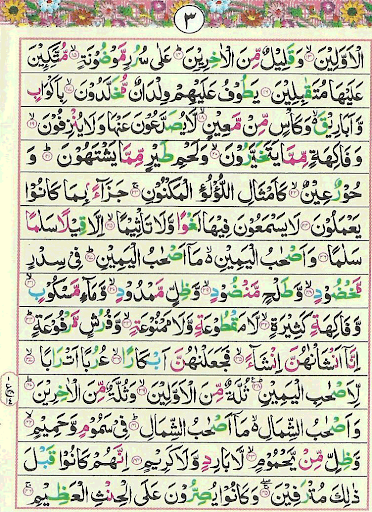 ٣
الْاَوَّلِيْنَ ۙ وَقَلِيْلٌ مِّنَ الْاٰخِرِيْنَ ؕ عَلٰى سُرُرٍ مَّوْضُوْنَةٍ ۙ مُّتَّكِـِٕيْنَ
عَلَيْهَا مُتَقٰبِلِيْنَ ۞ يَطُوْفُ عَلَيْهِمْ وِلْدَانٌ مُّخَلَّدُوْنَ ۙ بِاَكْوَابٍ
وَّاَبَارِيْقَ ۙ وَكَاْسٍ مِّنْ مَّعِيْنٍ ۙ لَّا يُصَدَّعُوْنَ عَنْهَا وَلَا يُنْزِفُوْنَ ۙ
وَفَاكِهَةٍ مِّمَّا يَتَخَيَّرُوْنَ ۙ وَلَحْمِ طَيْرٍ مِّمَّا يَشْتَهُوْنَ ؕ وَ
حُوْرٌ عِيْنٌ ۙ كَاَمْثَالِ اللُّؤْلُؤِ الْمَكْنُوْنِ ۚ جَزَآءًۢ بِمَا كَانُوْا
يَعْمَلُوْنَ ۞ لَا يَسْمَعُوْنَ فِيْهَا لَغْوًا وَّلَا تَاْثِيْمًا ۙ اِلَّا قِيْلًا سَلٰمًا
سَلٰمًا ۞ وَاَصْحٰبُ الْيَمِيْنِ ۙ مَاۤ اَصْحٰبُ الْيَمِيْنِ ؕ فِيْ سِدْرٍ
مَّخْضُوْدٍ ۙ وَّطَلْحٍ مَّنْضُوْدٍ ۙ وَّظِلٍّ مَّمْدُوْدٍ ۙ وَّمَآءٍ مَّسْكُوْبٍ ۙ
وَّفَاكِهَةٍ كَثِيْرَةٍ ۙ لَّا مَقْطُوْعَةٍ وَّلَا مَمْنُوْعَةٍ ۙ وَّفُرُشٍ مَّرْفُوْعَةٍ ؕ
اِنَّاۤ اَنْشَاْنٰهُنَّ اِنْشَآءً ۙ فَجَعَلْنٰهُنَّ اَبْكَارًا ۙ عُرُبًا اَتْرَابًا ۙ
لِّاَصْحٰبِ الْيَمِيْنِ ؕ ثُلَّةٌ مِّنَ الْاَوَّلِيْنَ ۙ وَثُلَّةٌ مِّنَ الْاٰخِرِيْنَ ؕ
وَاَصْحٰبُ الشِّمَالِ ۙ مَاۤ اَصْحٰبُ الشِّمَالِ ؕ فِيْ سَمُوْمٍ وَّحَمِيْمٍ ۙ
وَّظِلٍّ مِّنْ يَّحْمُوْمٍ ۙ لَّا بَارِدٍ وَّلَا كَرِيْمٍ ۞ اِنَّهُمْ كَانُوْا قَبْلَ
ذٰلِكَ مُتْرَفِيْنَ ۚ وَكَانُوْا يُصِرُّوْنَ عَلَى الْحِنْثِ الْعَظِيْمِ ۚ